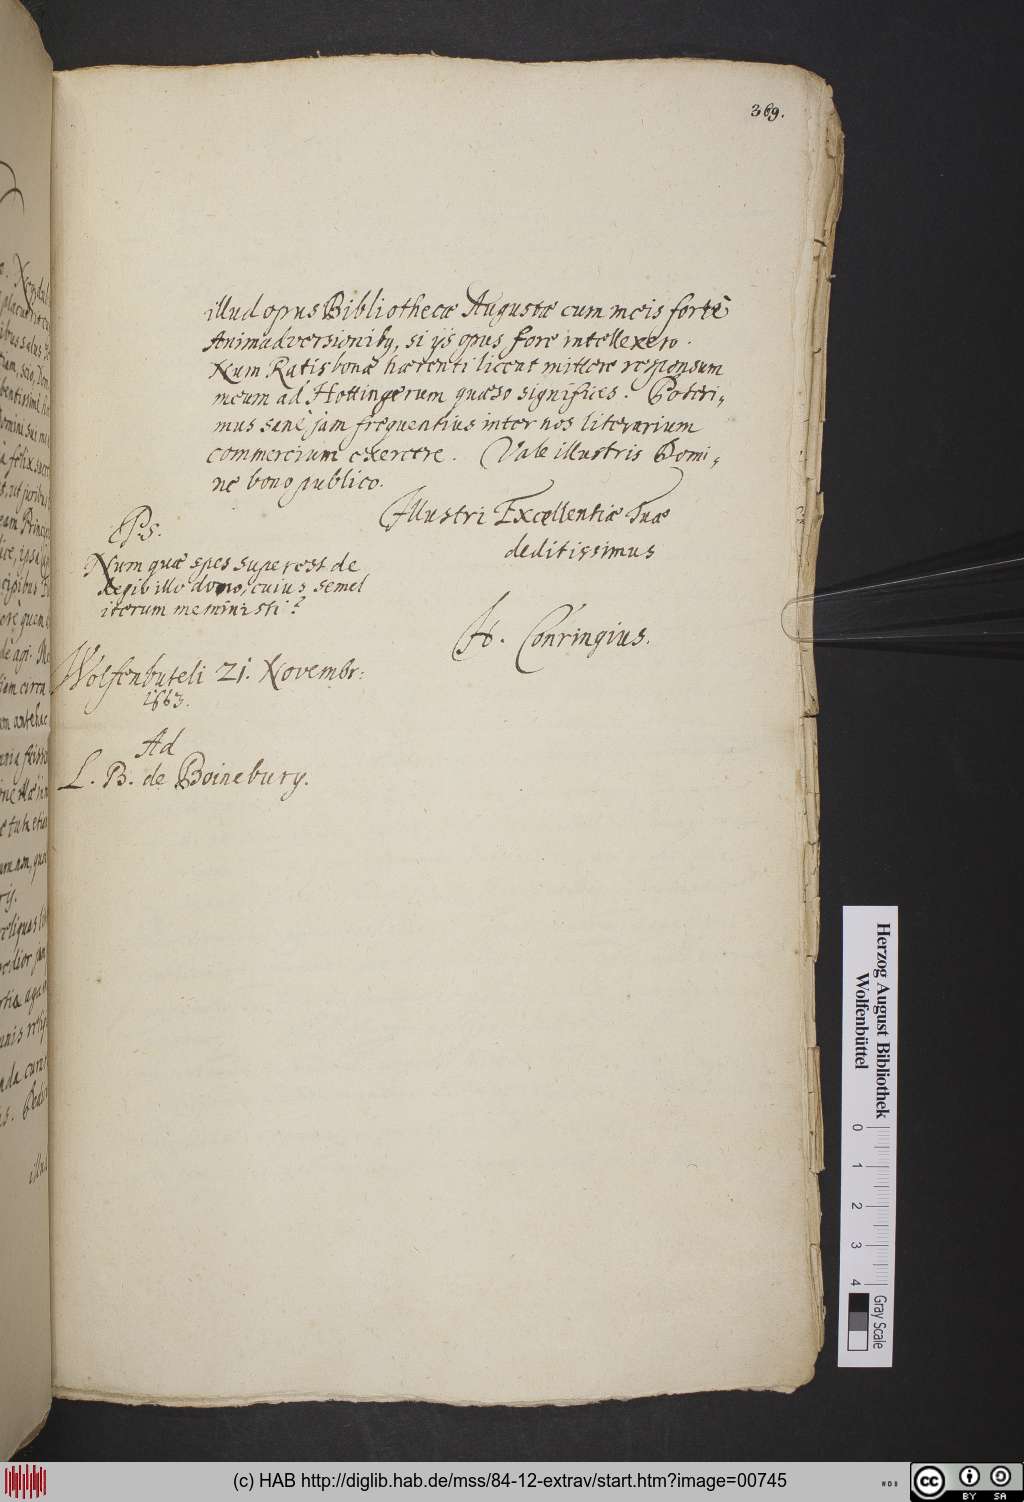 369.
illud opus Bibliothecæ Augustæ cum meis fortè
Animadversionibq, si ijs opus fore intellexero.
Num Ratisbonæ hærenti liceat mittere responsum
meum ad Hottingerum quæso significes. Poteri„
mus sanè jam frequentius inter nos literarium
commercium exercere. Vale illustris Domi„
ne bono publico.
Illustri Excellentiæ Tuæ
deditissimus
H. Conringius.
PS.
Num quæ spes superest de
illo dono, cuius semel
iterum meministi?
Wolfenbuteli 21. Novembr:
1663.
Ad
L. B. de Boineburg.
Herzog August Bibliothek
Wolfenbüttel
0 1 2 3 4
Gray Scale
(c) HAB http://diglib.hab.de/mss/84-12-extrav/start.htm?image=00745
cc BY SA